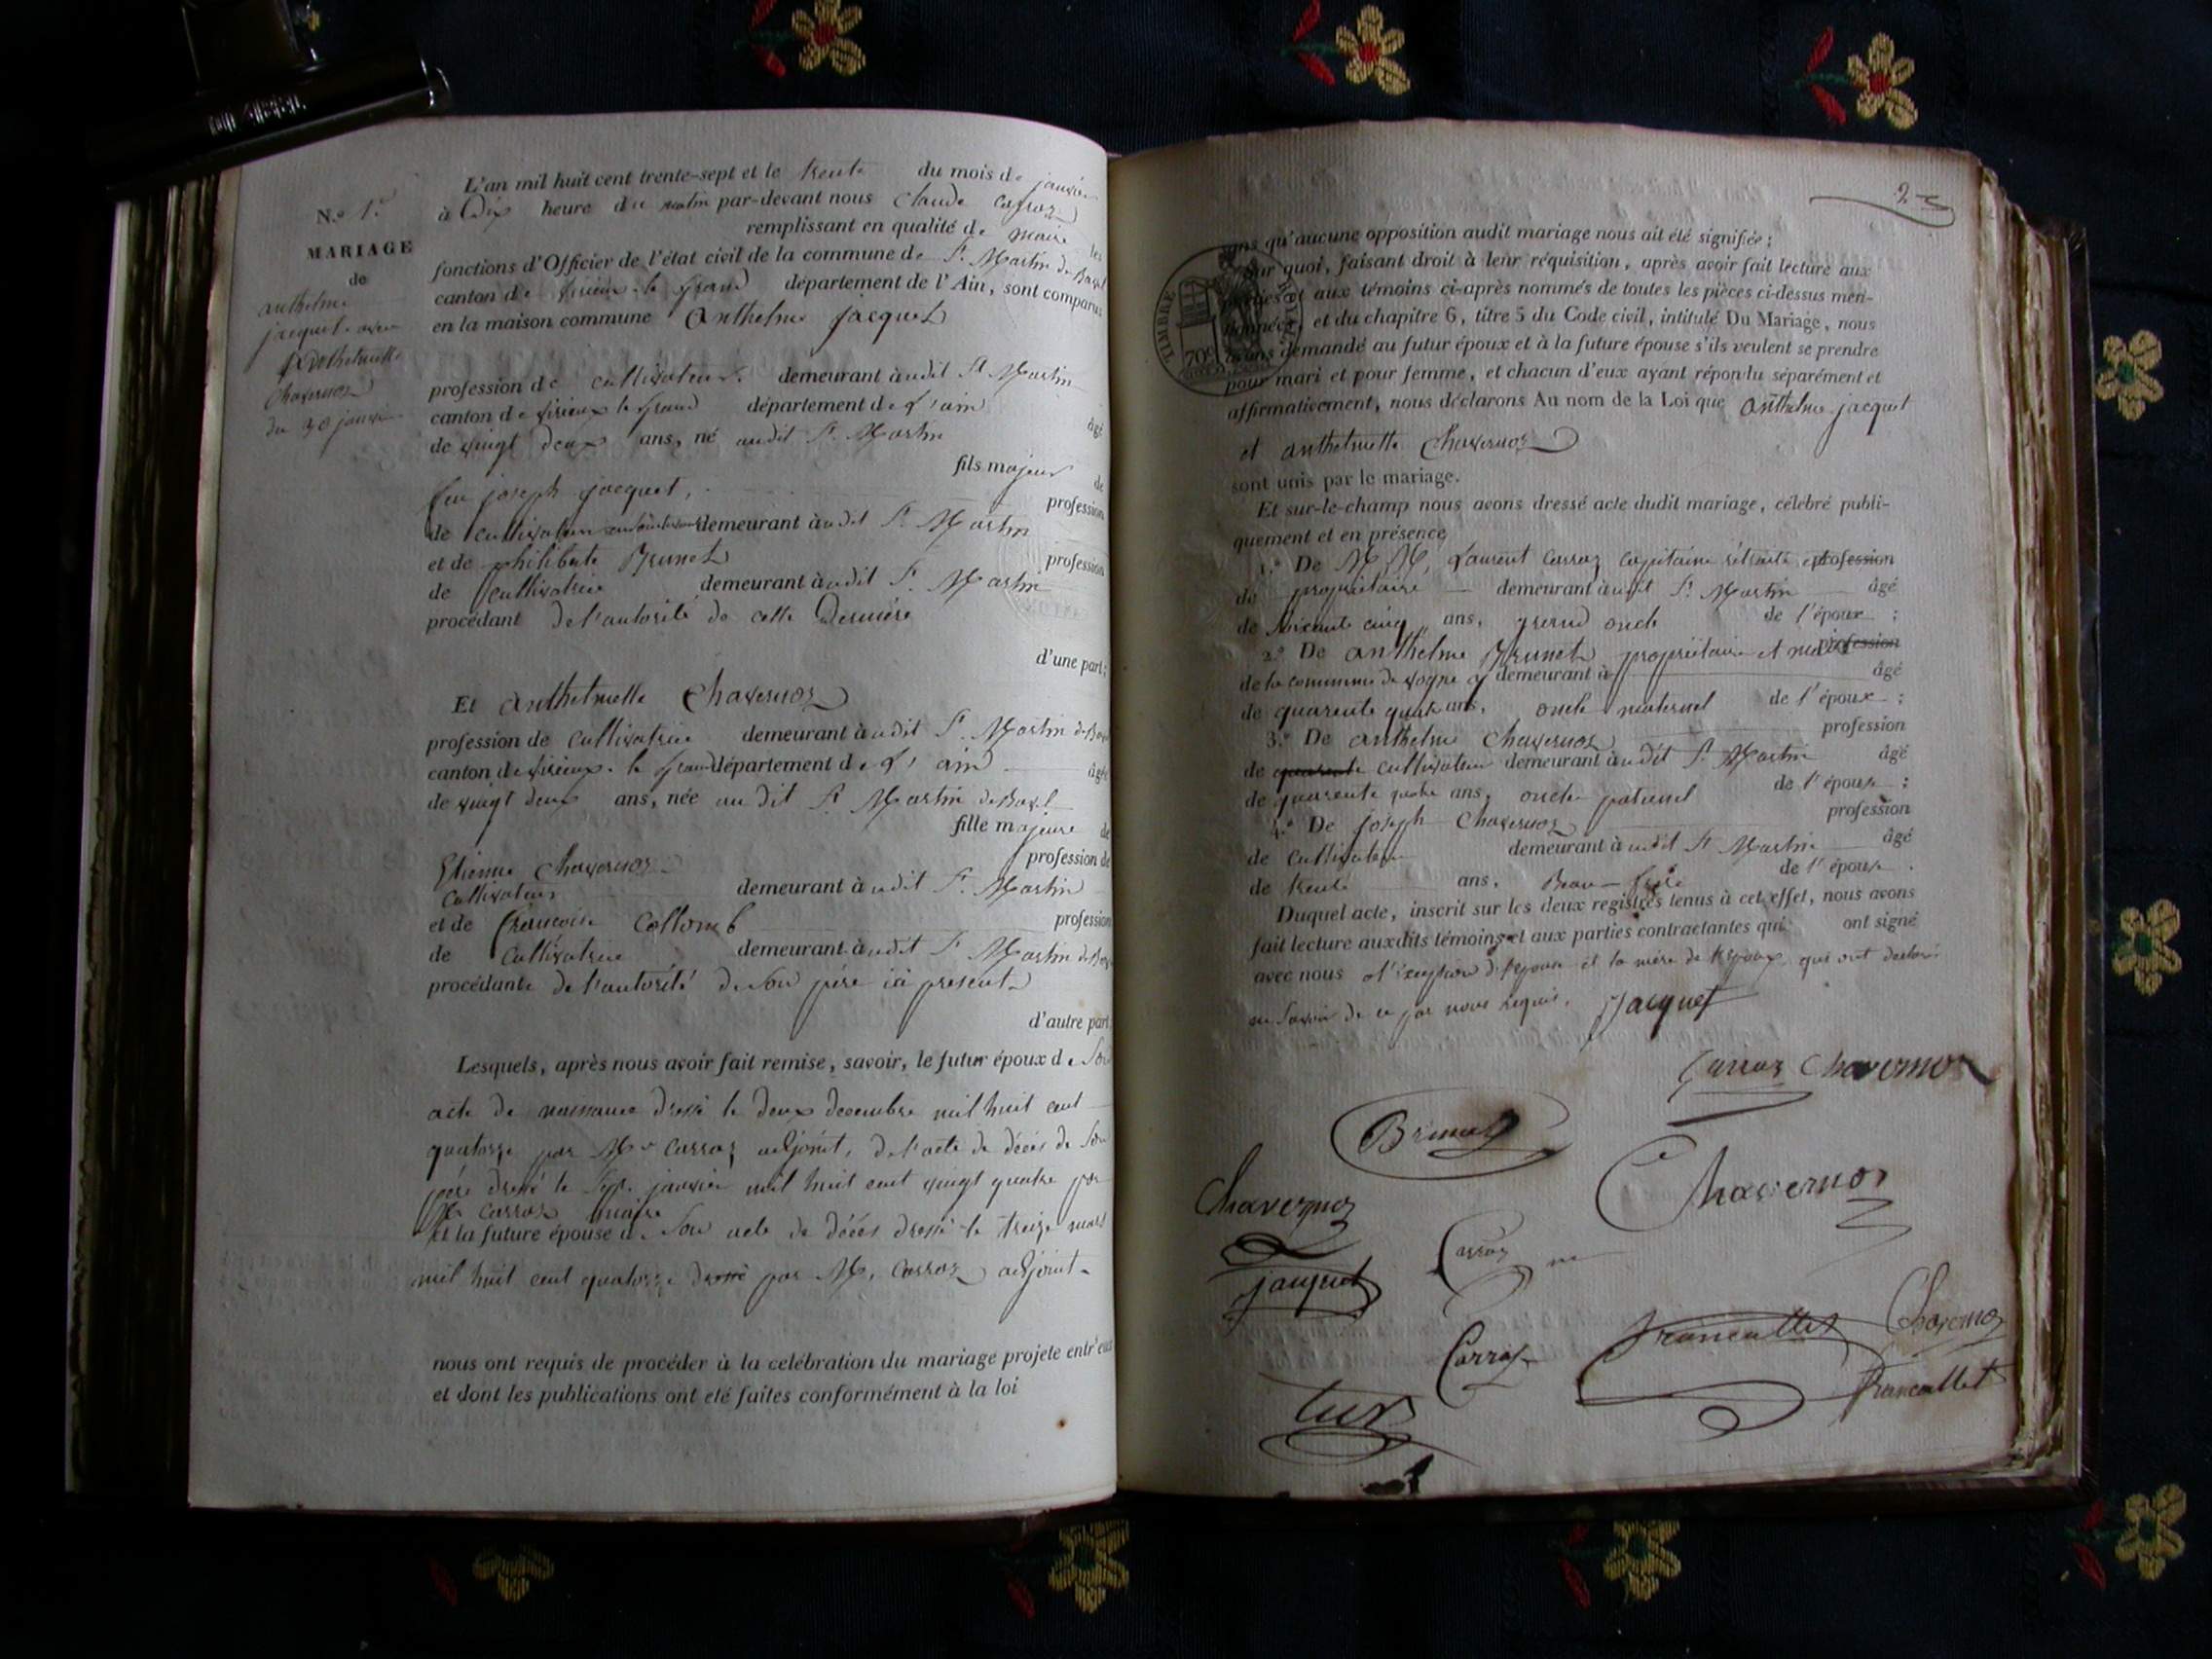 N.o 1.er
MARIAGE
de
anthelme
jacquet avec
anthelmette
Chavernoz
du 30 janvier
L'an mil huit cent trente-sept et le trente du mois de janvier
à Dix heure du matin par-devant nous Claude Carraz
remplissant en qualité de maire les
fonctions d'Officier de l'état civil de la commune de St. Martin de Bavel
canton de virieux le grand département de l'Ain, sont comparus
en la maison commune Anthelme jacquet
profession de cultivateur demeurant audit St Martin
canton de virieux le grand département de L'ain âgé
de vingt deux ans, né audit St. Martin
fils majeur de
feu joseph jacquet, profession
de cultivateur demeurant audit St. Martin
et de philiberte Brunet profession
de cultivatrice demeurant audit St. Martin
procédant de l'autorité de cette Dernière
d'une part;
Et Anthelmette Chavernoz
profession de Cultivatrice demeurant audit St. Martin de Bavel
canton de virieux le grand département de L'ain âgée
de vingt deux ans, née au dit St Martin de Bavel
fille majeure de
Etienne Chavernoz profession de
Cultivateur demeurant audit St. Martin
et de francoise Collomb profession
de Cultivatrice demeurant audit St. Martin de Bavel
procédante de l'autorité de Son père ici present
d'autre part
Lesquels, après nous avoir fait remise, savoir, le futur époux de Son
acte de naissance dressé le deux decembre mil huit cent
quatorze par Mr Carraz adjoint, de l'acte de décés de Son
père dressé le Sept janvier mil huit cent vingt quatre par
Mr Carraz maire
et la future épouse de Son acte de décés dressé le treize mars
mil huit cent quatorze dressé par M. Carraz adjoint
nous ont requis de procéder à la celébration du mariage projeté entr'eux
et dont les publications ont eté faites conformément à la loi
2
sans qu'aucune opposition audit mariage nous ait été signifiée;
Pour quoi, faisant droit à leur réquisition, après avoir fait lecture aux
parties et aux témoins ci-après nommés de toutes les pièces ci-dessus men-
tionnées, et du chapitre 6, titre 5 du Code civil, intitulé Du Mariage, nous
avons demandé au futur époux et à la future épouse s'ils veulent se prendre
pour mari et pour femme, et chacun d'eux ayant répondu séparément et
affirmativement, nous déclarons Au nom de la Loi que anthelme jacquet
et anthelmette Chavernoz
sont unis par le mariage.
Et sur-le-champ nous avons dressé acte dudit mariage, célébré publi-
quement et en présence
1.o De M M. Laurent Carraz capitaine retraité et profession
de propriétaire demeurant audit St. Martin âgé
de Soixante cinq ans, grand oncle de l'époux ;
2.o De anthelme Brunet propriétaire et maire profession
de la commune de vogne y demeurant à âgé
de quarente quatre ans, oncle maternel de l'époux ;
3.o De anthelme Chavernoz profession
de quarente cultivateur demeurant audit St. Martin âgé
de quarente quatre ans, oncle paternel de l'épouse ;
4.o De joseph Chavernoz profession
de cultivateur demeurant audit St Martin âgé
de trente ans, Beau-frère de l'épouse.
Duquel acte, inscrit sur les deux registres tenus à cet effet, nous avons
fait lecture auxdits témoins et aux parties contractantes qui ont signé
avec nous à l'exception de l'epouse et la mère de l'epoux qui ont declaré
ne Savoir de ce par nous requis. Jacquet
Carraz Chavernoz
Brunet
Chavernoz
Chavernoz
Carraz
jacquet
Francallet
Chavernoz
Carraz
Francallet
TIMBRE ROYAL
70c